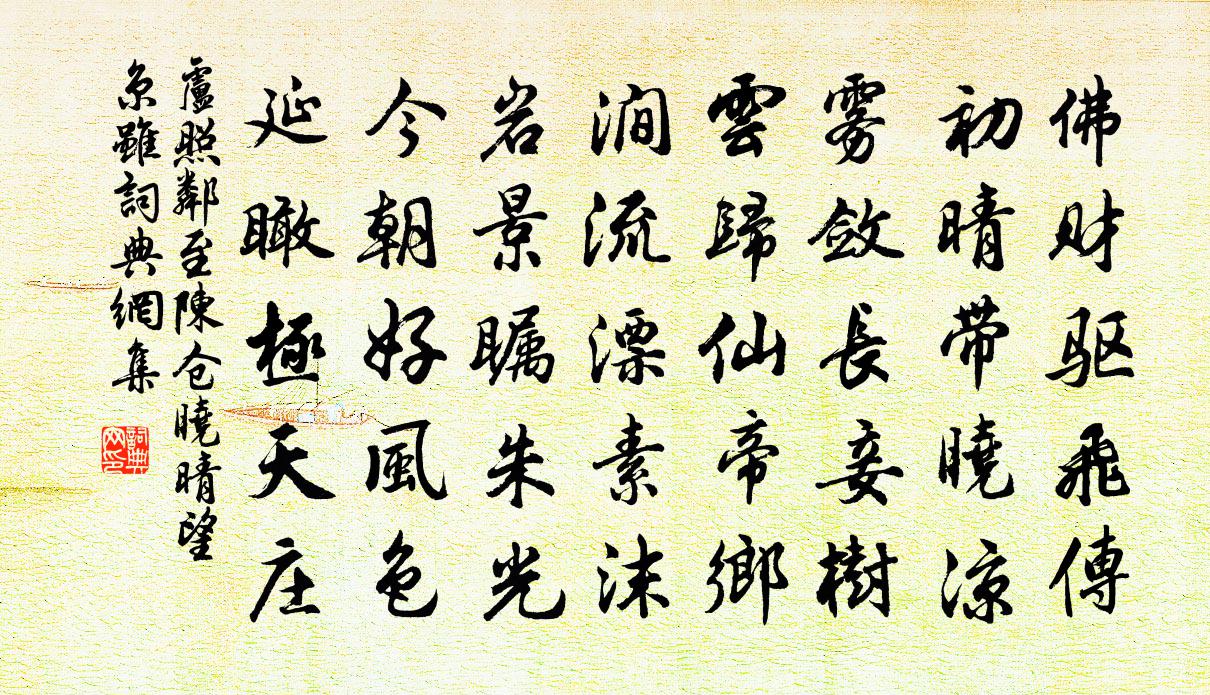 佛财驱飛傳
初晴带曉凉
雾斂長妾樹
雲歸仙帝鄉
澗流漂素沫
岩景瞩朱光
今朝好風色
延瞰極天庄
盧照鄰至陳仓曉晴望
京雖詞典網集
詞典网印